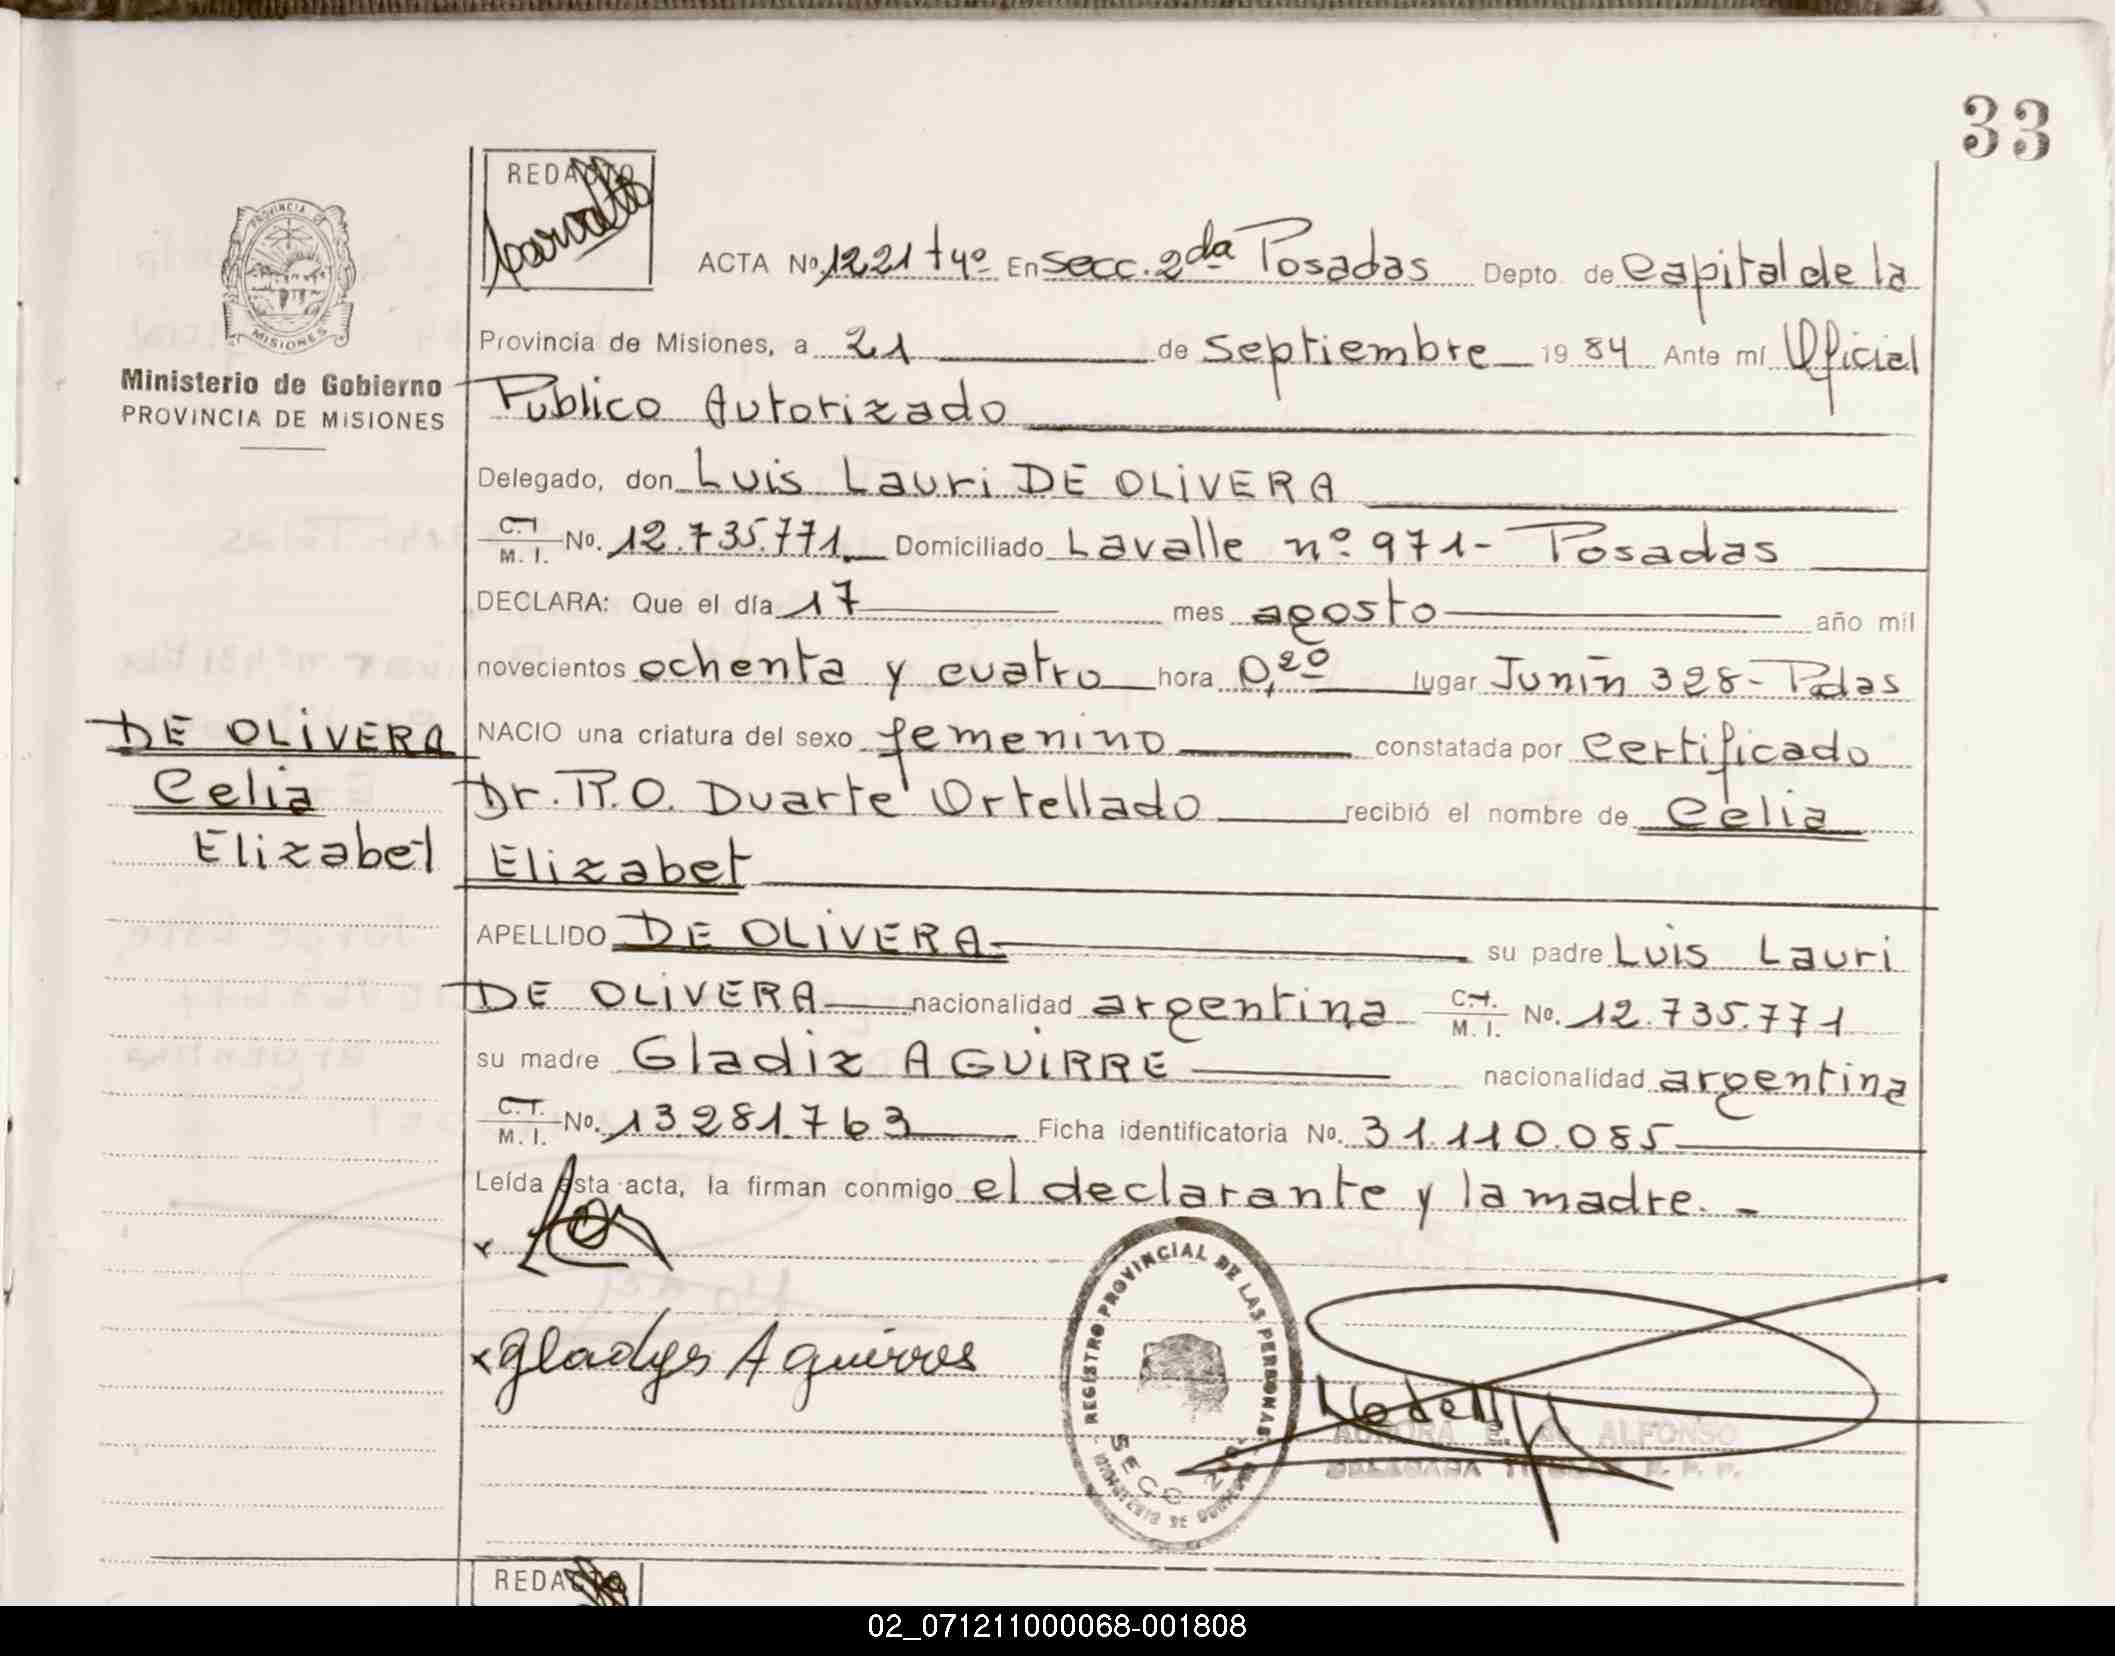 33
REDACTO
ACTA Nº 1221 tº 4º En secc. 2da Posadas Depto. de Capital de la
Provincia de Misiones, a 21 de septiembre 19 84 Ante mí Oficial
Público Autorizado
Delegado, don Luis Lauri DE OLIVERA
C.I. M. I. No. 12.735.771 Domiciliado Lavalle nº 971- Posadas
DECLARA: Que el día 17 mes agosto año mil
novecientos ochenta y cuatro hora 0,20 lugar Junín 328- Pdas
NACIO una criatura del sexo femenino constatada por Certificado
Dr. R.O. Duarte Ortellado recibió el nombre de Celia
Elizabet
APELLIDO DE OLIVERA su padre Luis Lauri
DE OLIVERA nacionalidad argentina C.I. M. I. No. 12.735.771
su madre Gladiz AGUIRRE nacionalidad argentina
C.I. M. I. No. 13281.763 Ficha identificatoria No. 31.110.085
Leída esta acta, la firman conmigo el declarante y la madre. -
PROVINCIA DE
MISIONES
Ministerio de Gobierno
PROVINCIA DE MISIONES
DE OLIVERA
Celia
Elizabet
Gladys Aguirres
REGISTRO PROVINCIAL DE LAS PERSONAS
SECC
AURORA E. de ALFONSO
DELEGADA
REDACTO
02_071211000068-001808